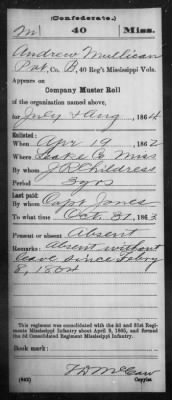 (Confederate.)
M 40 Miss.
Andrew Mullican
Pvt, Co. B, 40 Reg't Mississippi Vols.
Appears on
Company Muster Roll
of the organization named above,
for July & Aug, 1864
Enlisted:
When Apr 19, 1862
Where Leake Co Miss
By whom J R Childress
Period 3 yrs
Last paid:
By whom Capt Jones
To what time Oct 31, 1863
Present or absent Absent
Remarks: Absent without
leave since Febry
8, 1864
This regiment was consolidated with the 3d and 31st Regiments Mississippi Infantry about April 9, 1865, and formed
the 3d Consolidated Regiment Mississippi Infantry.
Book mark:
(642) Copyist.